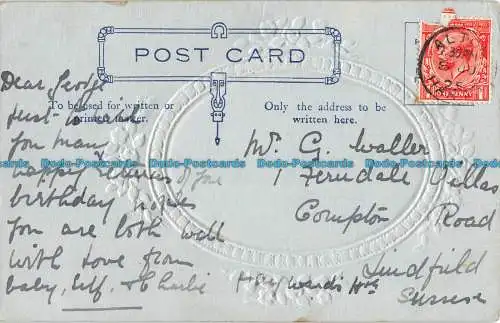 POST CARD
To be used for written or
printed matter.
Only the address to be
written here.
Dear George
just to wish
you many
happy returns of your
birthday hopes
you are both well
with love from
baby, Elf, & Charlie
Mr. G. Waller
1 Ferndale Villas
Compton Road
Lindfield
Sussex
Haywards Hth
Dodo-Postcards